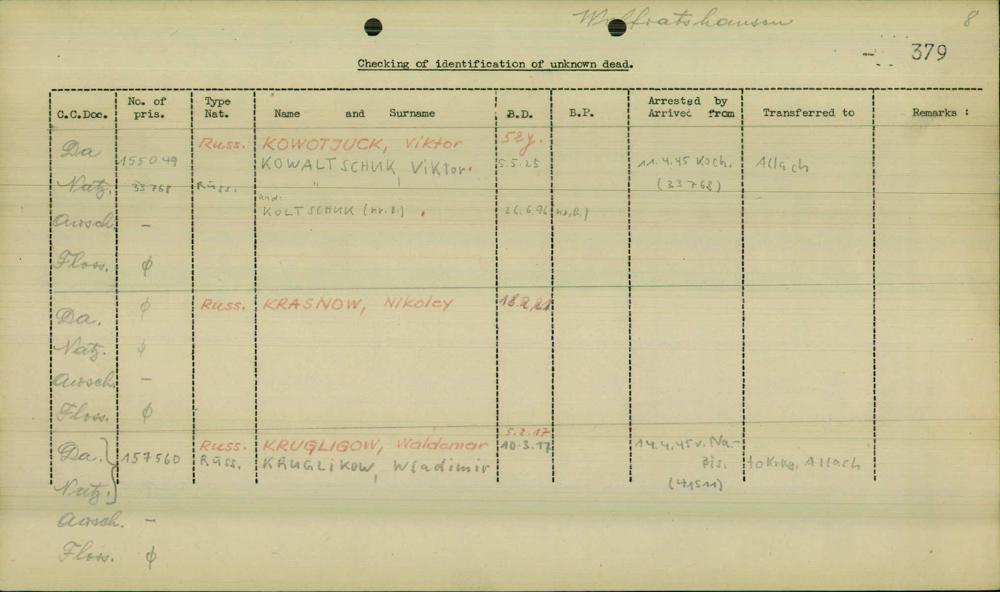 Wolfratshausen 8
379
Checking of identification of unknown dead.
C.C.Doc. No. of pris. Type Nat. Name and Surname B.D. B.P. Arrested by Arrived from Transferred to Remarks :
Da Russ. KOWOTJUCK, Viktor 52 y.
155049 KOWALTSCHUK, Viktor. 5.5.25 11.4.45 Koch. Allach
Natz. 33768 Russ. " (33768)
und:
KOLTSCHUK (nr.B.) 26.6.96 (nr.B.)
Ausch. –
Floss. ϕ
Da. ϕ Russ. KRASNOW, Nikoley
Natz. ϕ
Ausch. –
Floss. ϕ
5.2.17
Da. 157560 Russ. KRUGLIGOW, Waldemar 10.3.17 14.4.45 v. Na-
Russ. KRUGLIKOW, Wladimir to Kdo. Allach
Natz. (41511)
Ausch. –
Floss. ϕ